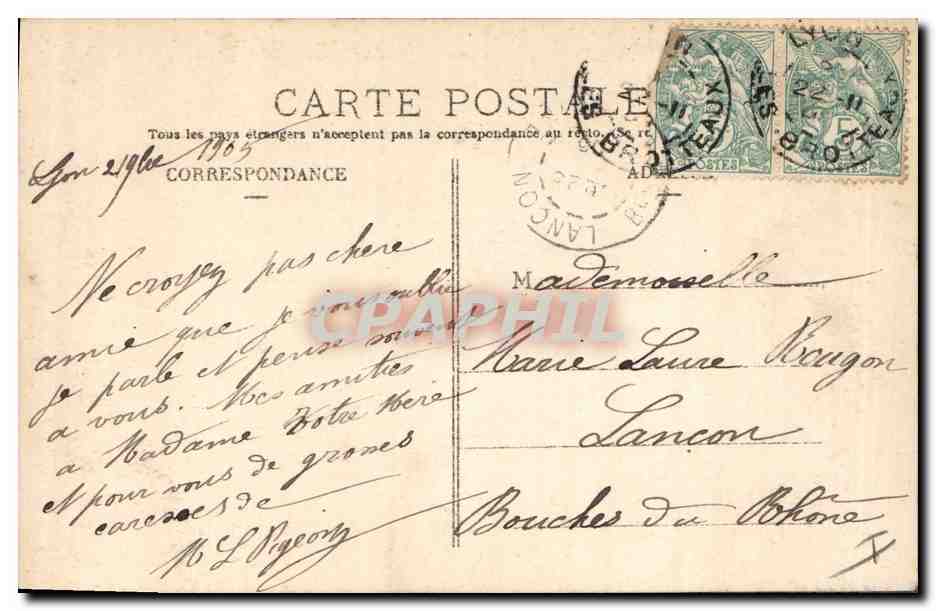 CARTE POSTALE
Tous les pays étrangers n'acceptent pas la correspondance au recto. (Se re
Lyon 21 9bre 1905
CORRESPONDANCE
Ne croyez pas chere
amie que je vous oublie
je parle et pense souvent
a vous. Mes amitiés
a Madame Votre Mère
et pour vous de grosses
caresses de
M L
Mademoiselle
Marie Laure Rougon
Lancon
Bouches du Rhône
LYON
LES BROTTEAUX
22 -11
POSTES
LANCON
CPAPHIL